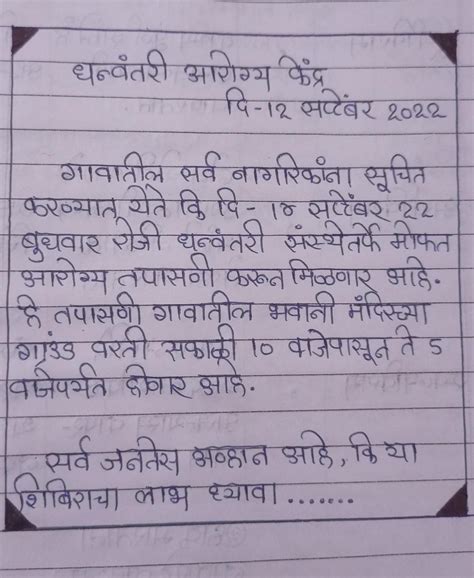 धन्वंतरी आरोग्य केंद्र
दि-12 सप्टेंबर 2022
गावातील सर्व नागरिकांना सूचित
करण्यात येते कि दि - 14 सप्टेंबर 22
बुधवार रोजी धन्वंतरी संस्थेतर्फे मोफत
आरोग्य तपासणी करून मिळणार आहे.
हे तपासणी गावातील भवानी मंदिरच्या
ग्राउंड वरती सकाळी 10 वाजेपासून ते 5
वाजेपर्यंत होणार आहे.
सर्व जनतेस अव्हान आहे, कि या
शिबिराचा लाभ घ्यावा .......